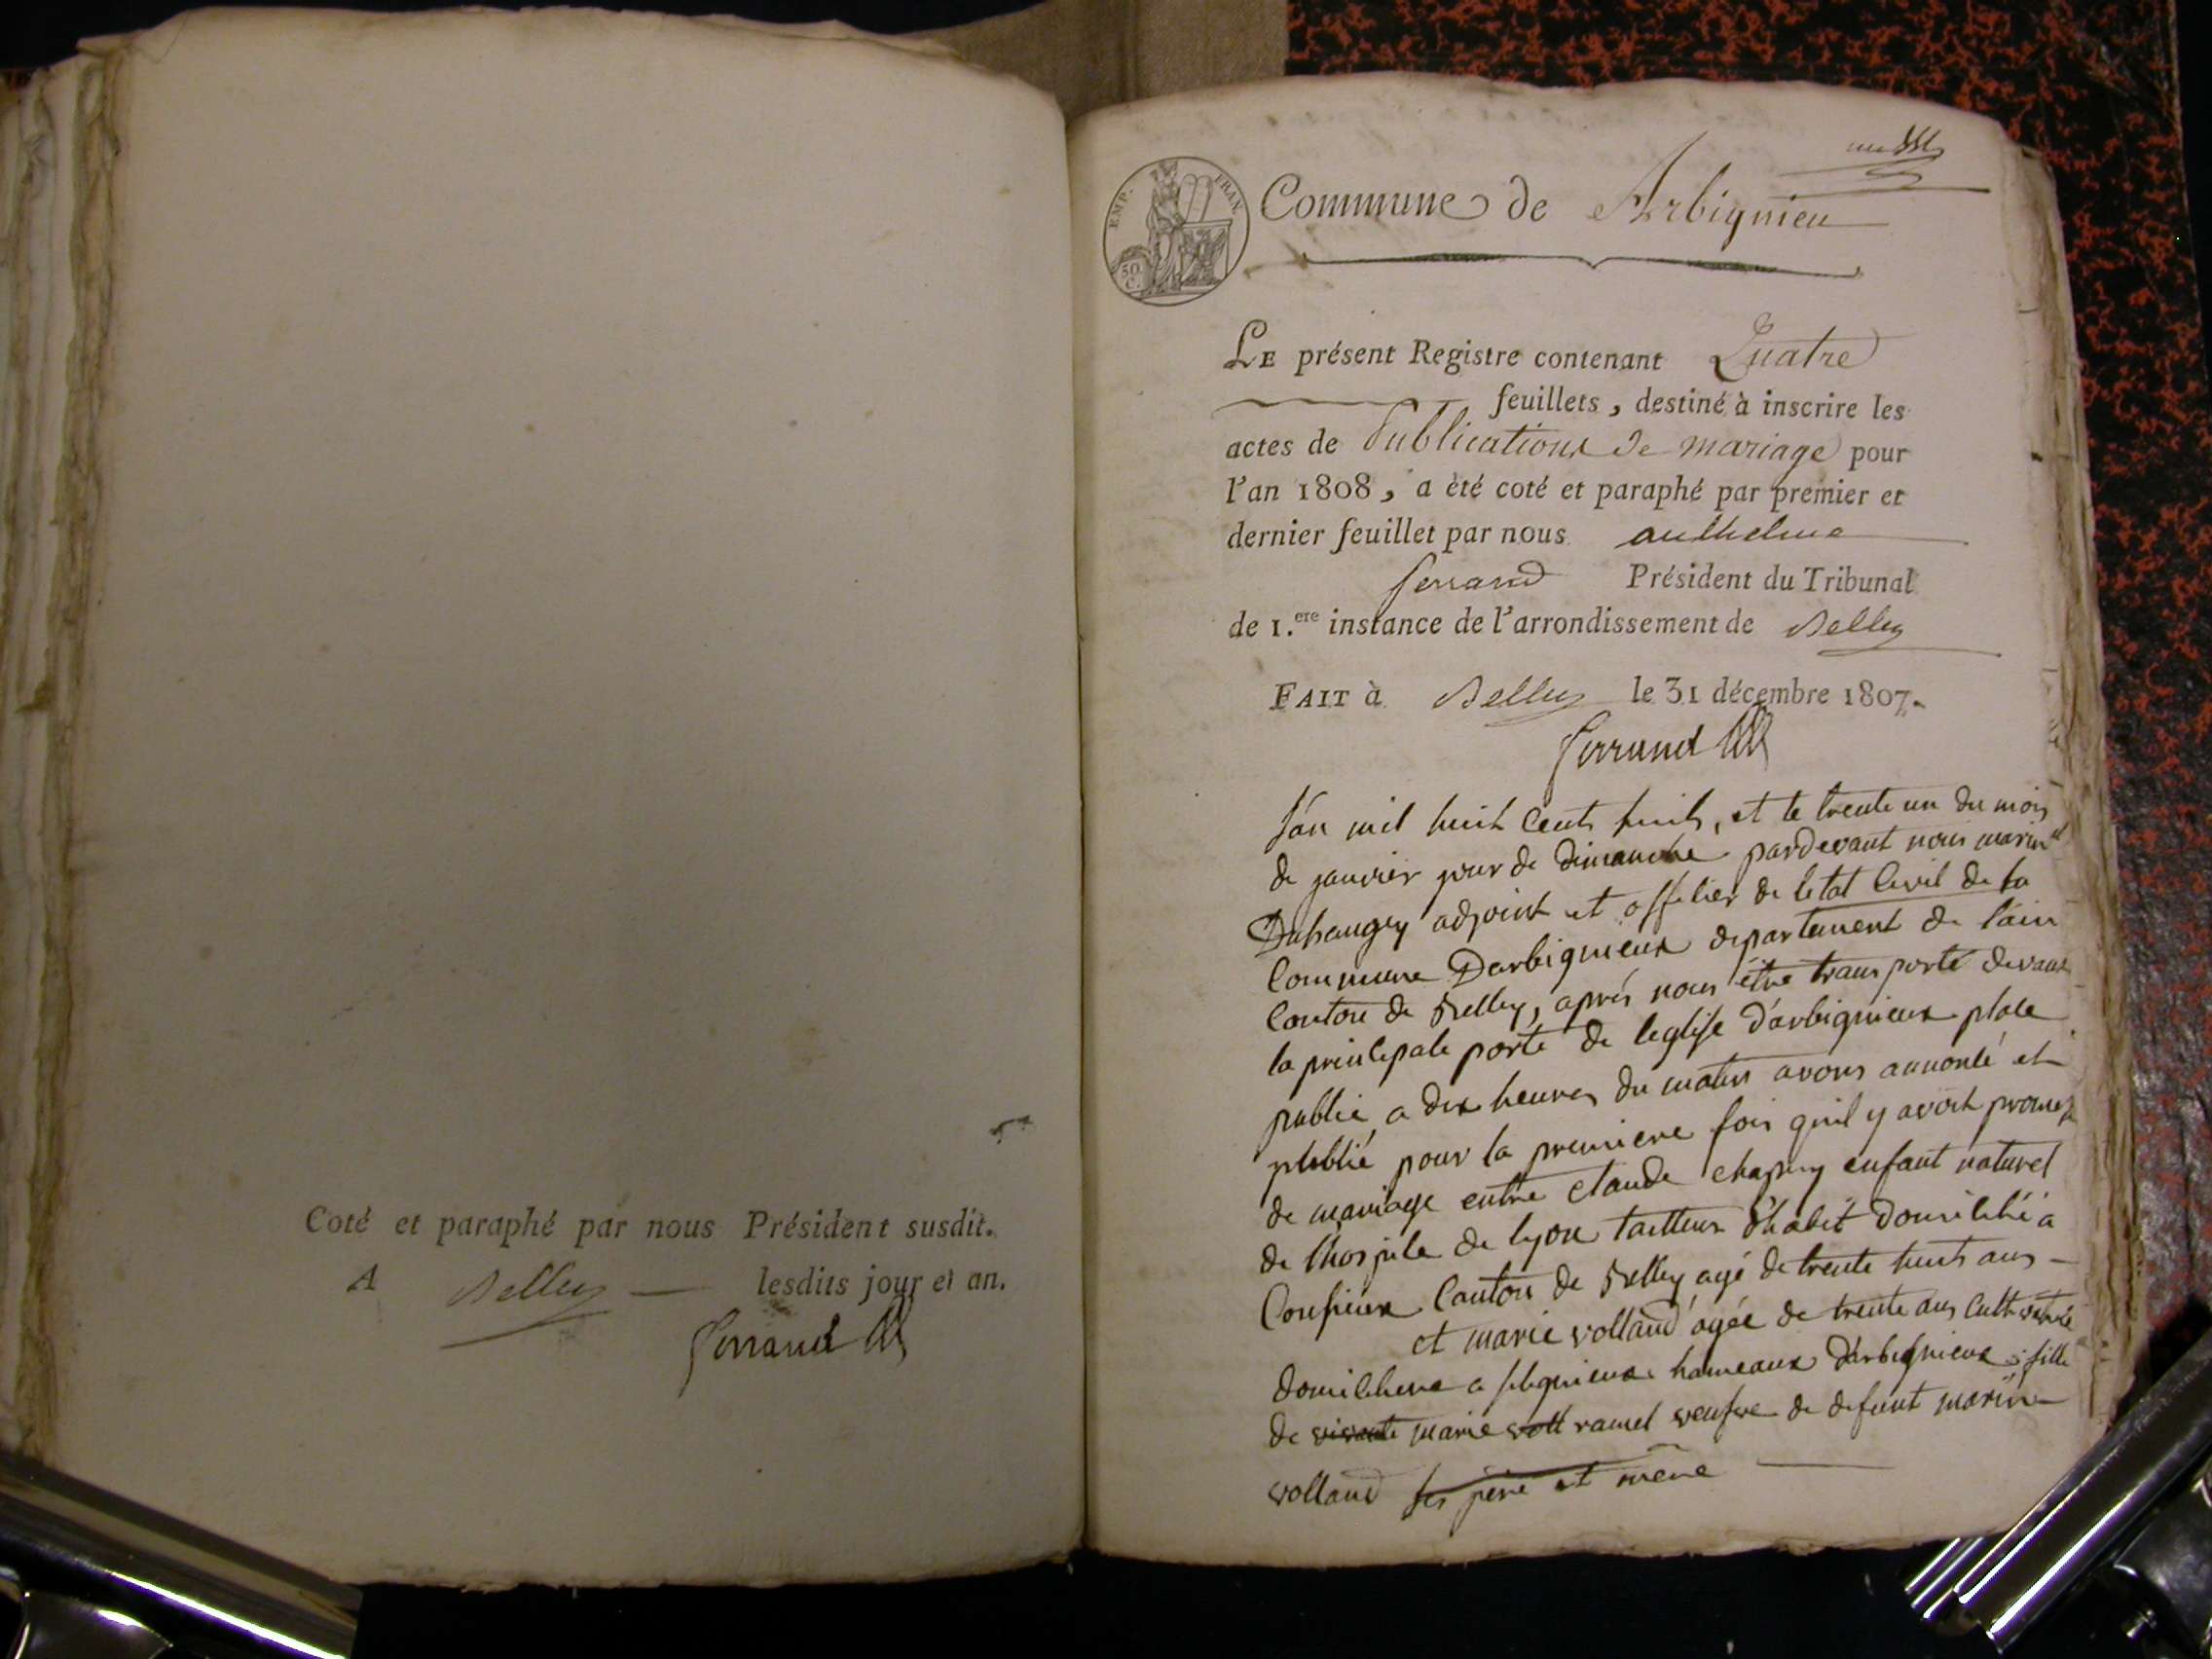 Coté et paraphé par nous Président susdit.
A Belley lesdits jour et an.
Ferrand
EMP. FRAN.
50 C.
Commune de Arbignieu
LE présent Registre contenant Quatre
feuillets, destiné à inscrire les
actes de Publications de mariage pour
l'an 1808, a été coté et paraphé par premier et
dernier feuillet par nous anthelme
ferrand Président du Tribunal
de 1.ere instance de l'arrondissement de Belley
FAIT à Belley le 31 décembre 1807.
Ferrand
Lan mil huit cents huit, et le trente un du mois
de janvier jour de dimanche pardevant nous marin
adjoint et officier de letat Civil de la
Commune Darbignieux departement de lain
Canton de Belley, après nous être transporté devant
la principale porte de leglise d'arbignieux place
public a dix heures du matin avons annoncé et
publié pour la premiere fois quil y avoit promesse
de mariage entre claude chapuy enfant naturel
de lhospice de lyon tailleur d'habit domicilié a
Canton de Belley agé de trente huit ans
et marie volland agée de trente ans cultivatrice
domiciliere a hameaux d'arbignieux fille
de vivante marie voll ramel veufve de defunt marin
volland ses pere et mere